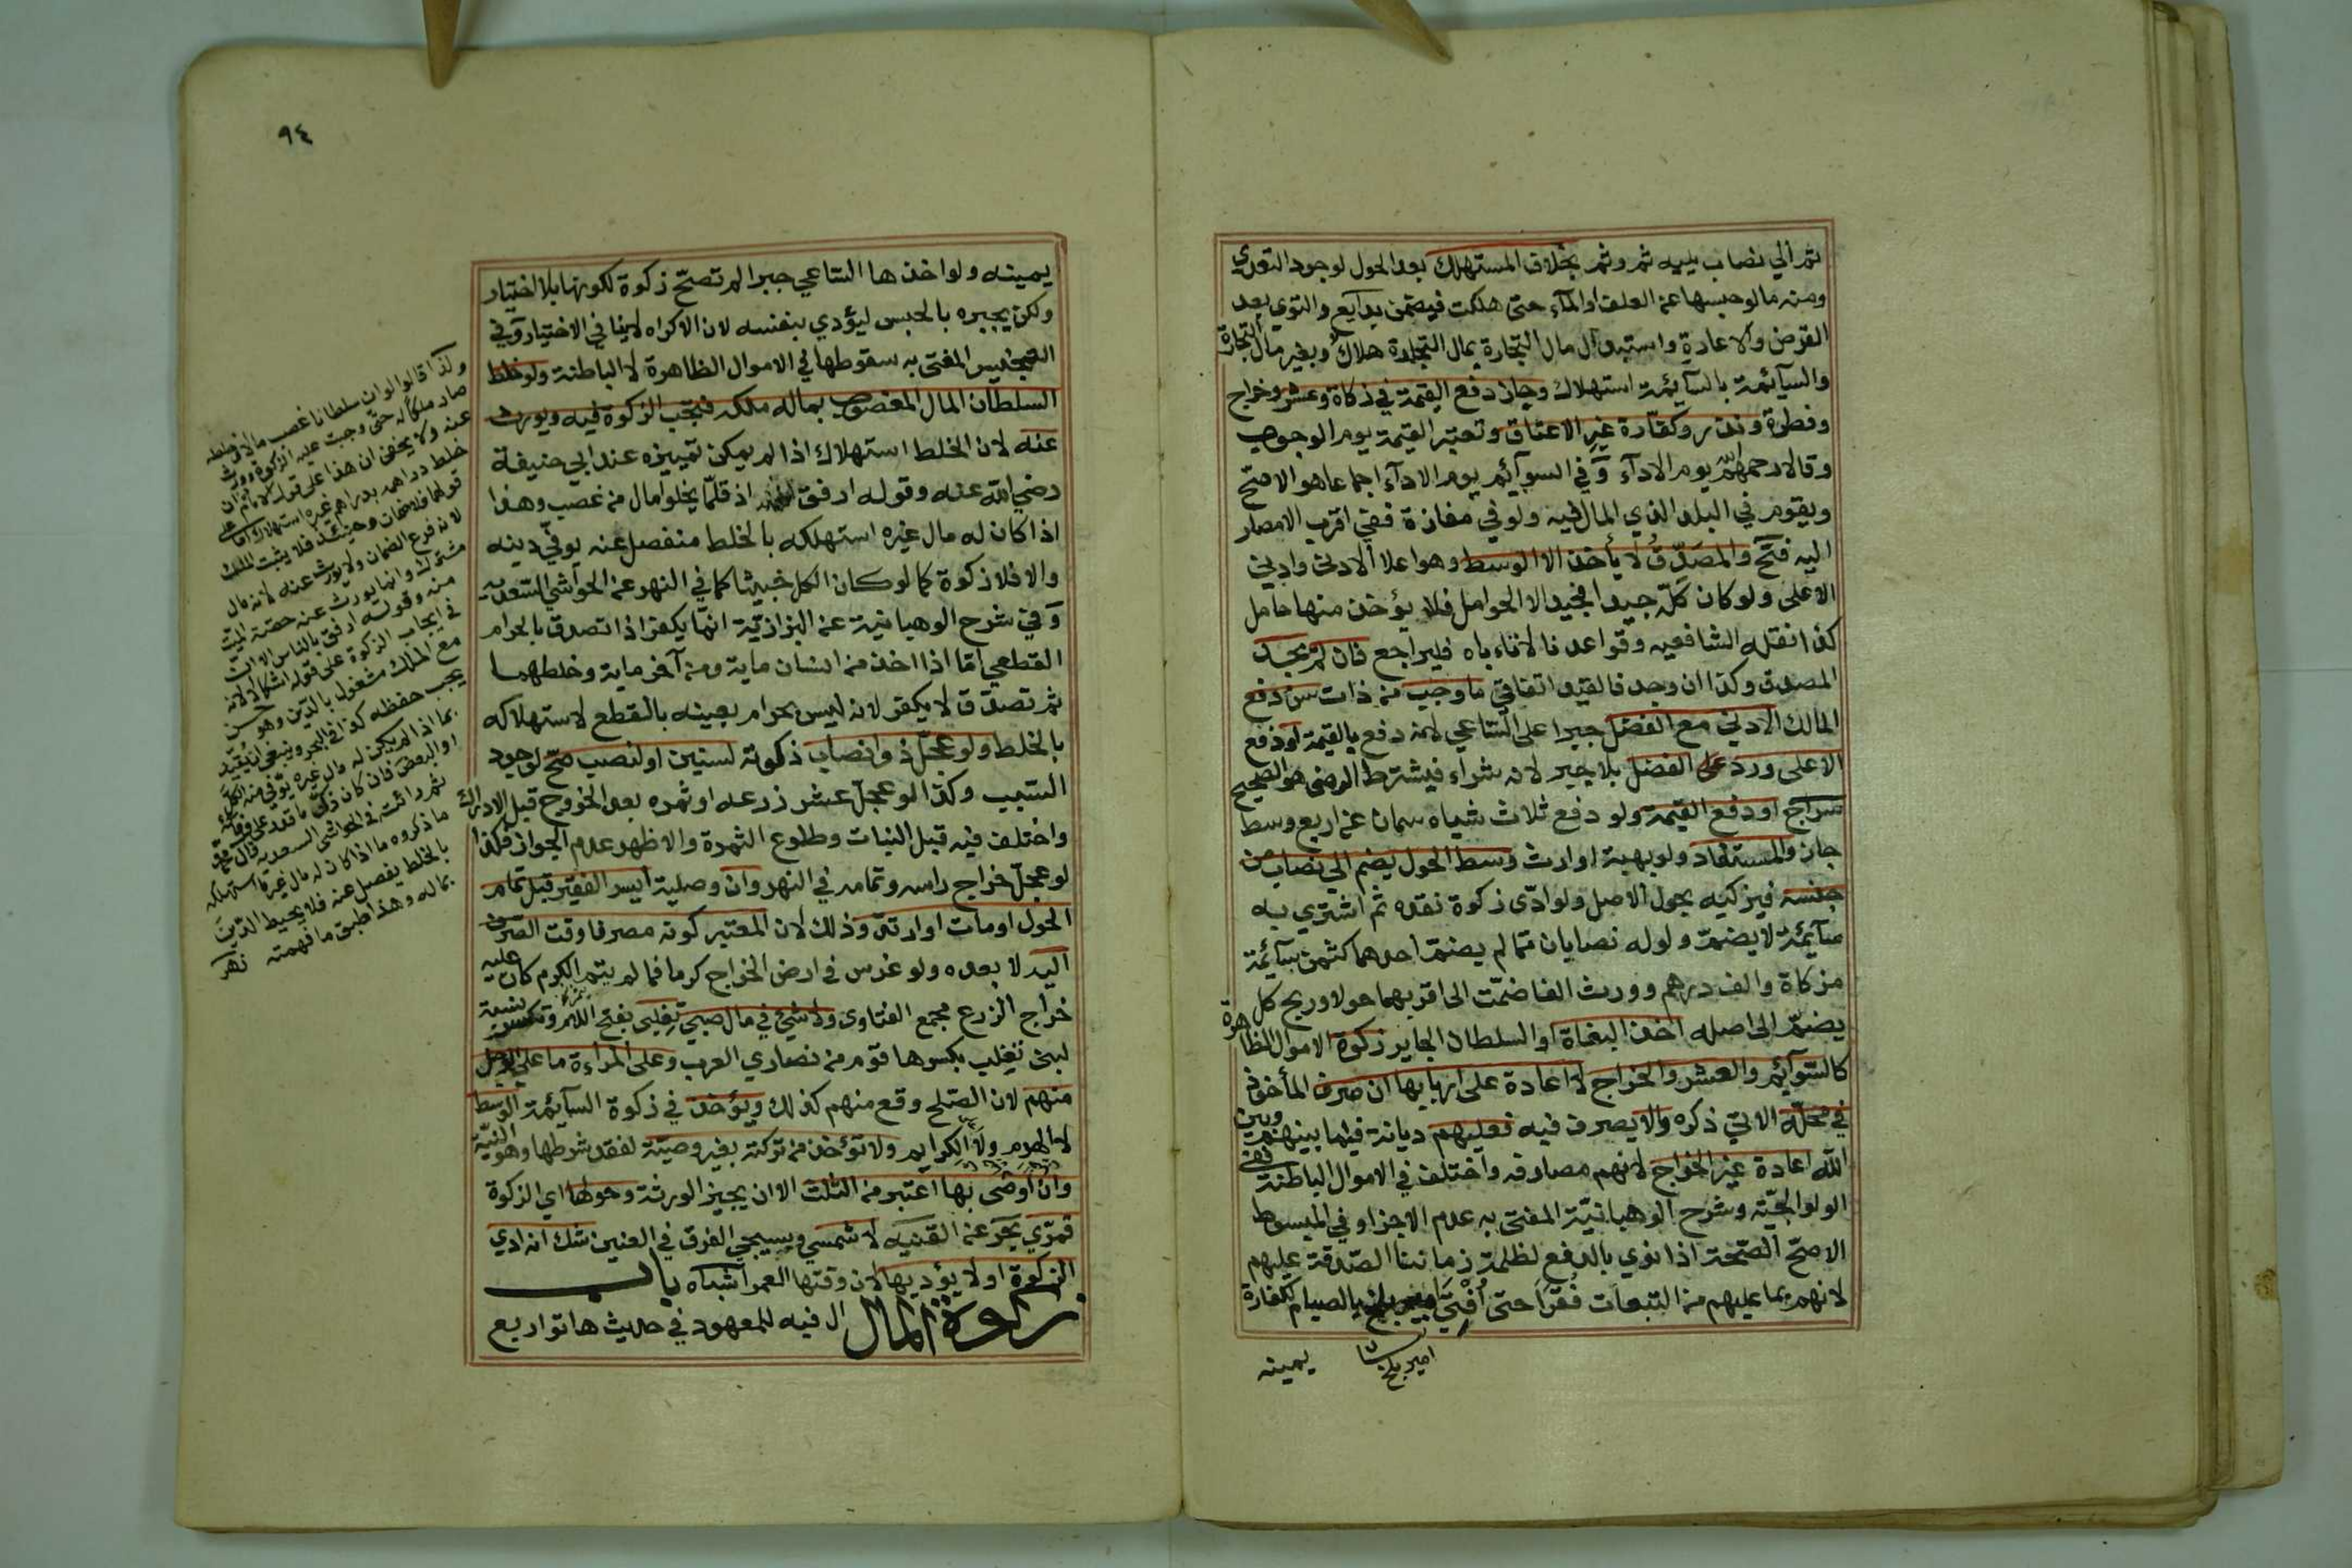 ثم الي نصاب يليه ثم وثم بخلاف المستهلك بعد الحول لوجود التعدي
ومنه ما لو حبسها عن العلف او المآء حتى هلكت فيضمن بدايع والتوي بعد
القرض والاعادة واستبدال مال التجارة بمال التجارة هلاك وبغير مال التجارة
والسآئمة بالسآئمة استهلاك وجاز دفع القيمة في زكاة وعشر وخراج
وفطرة ونذر وكفّارة غير الاعتاق وتعتبر القيمة يوم الوجوب
وقالا رحمهما الله يوم الادآء وفي السوآئم يوم الادآء اجماعا هو الاصح
ويقوم في البلد الذي المال فيه ولو في مفازة ففي اقرب الامصار
اليه فتح والمصدّق لا يأخذ الا الوسط وهو اعلا الادنى وادني
الاعلى ولو كان كلّه جيدا فجيد الا الحوامل فلا يؤخذ منها حامل
كذا نقله الشافعيه وقواعدنا لا تاباه فليراجع فان لم يجد
المصدق وكذا ان وجد فالقيد اتفاقي ما وجب من ذات سن دفع
المالك الادني مع الفضل جبرا على الساعي لانه دفع بالقيمة او دفع
الاعلى ورد على الفضل بلا جبر لانه شراء فيشترط الرضى هو الصحيح
سراج او دفع القيمة ولو دفع ثلاث شياه سمان عن اربع وسط
جاز والمستفاد ولو بهبة او ارث وسط الحول يضم الي نصاب من
جنسه فيزكيه بحول الاصل ولو ادّى زكوة نقده ثم اشتري به
سآئمة لا يضم ولو له نصابان مما لم يضم احدهما كثمن سآئمة
مزكاة والف درهم وورث الفا ضمّت الى اقربهما حولا وربح كل
يضمّ الى اصله اخذ البغاة او السلطان الجاير زكوة الاموال الظاهرة
كالسوآئم والعشر والخراج لا اعادة على اربابها ان صرف المأخوذ
في محلّه الاتي ذكره والا يصرف فيه فعليهم ديانة فيما بينهم وبين
الله اعادة غير الخراج لانهم مصارفه واختلف في الاموال الباطنة ففي
الولوالجيّة وشرح الوهبانيّة المفتى به عدم الاجزا وفي المبسوط
الاصحّ الصّحة اذا نوي بالدفع لظلمة زماننا الصّدقة عليهم
لانهم بما عليهم من التبعات فقرا حتى اُفتيَ بالصيام لكفارة
امير بلخ
يمينه
٩٤
يمينه ولو اخذها الساعي جبرا لم تصحّ زكوة لكونها بلا اختيار
ولكن يجبره بالحبس ليؤدي بنفسه لان الاكراه لا ينافي الاختيار وفي
التجنيس المفتى به سقوطها في الاموال الظاهرة لا الباطنة ولو خلط
السلطان المال المغصوب بماله ملكه فتجب الزكوة فيه ويورث
عنه لان الخلط استهلاك اذا لم يمكن تمييزه عند ابي حنيفة
رضي الله عنه وقوله ارفق اذ قلّما يخلوا مال من غصب وهذا
اذا كان له مال غيره استهلكه بالخلط منفصل عنه يوفي دينه
والا فلا زكوة كما لو كان الكل خبيثا كما في النهر عن الحواشي السعديه
وفي شرح الوهبانية عن البزازيّة انّما يكفر اذا تصدق بالحرام
القطعي امّا اذا اخذ من انسان ماية ومن آخر ماية وخلطهما
ثم تصدق لا يكفر لانه ليس بحرام بعينه بالقطع لاستهلاكه
بالخلط ولو عجلّ ذو نصاب زكوته لسنين او لنصب صحّ لوجود
السبب وكذا لو عجلّ عشر زرعه او ثمره بعد الخروج قبل الادراك
واختلف فيه قبل النبات وطلوع الثمرة والاظهر عدم الجواز وكذا
لو عجلّ خراج راسه وتمامه في النهر وان وصلية ايسر الفقير قبل تمام
الحول او مات او ارتدّ وذلك لان المعتبر كونه مصرفا وقت الصّرف
اليه لا بعده ولو غرس في ارض الخراج كرما فما لم يتم الكرم كان عليه
خراج الزرع مجمع الفتاوى ولا شيئ في مال صبي تغلبى بفتح اللام وتكسر نسبة
لبنى تغلب بكسرها قوم من نصاري العرب وعلى المراءة ما على الرجل
منهم لان الصّلح وقع منهم كذلك ويؤخذ في زكوة السآئمة الوسط
لا الهرم ولا الكرايم ولا تؤخذ من تركته بغير وصيّة لفقد شرطها وهو النيّة
وان اوصى بها اعتبر من الثلث الا ان يجيز الورثة وحولها اي الزكوة
قمرّي بحر عن القنيه لا شمسي وسيجي الفرق في العنين شك انه ادي
الزكوة او لا يؤديها لان وقتها العمر اشباه باب
زكوة المال ال فيه للمعهود في حديث هاتوا ربع
ولذا قالوا لو ان سلطانا غصب مالا وخلطه
صار ملكا له حتى وجبت عليه الزكوة وورث
عنه ولا يخفى ان هذا على قول الامام ان
خلط دراهمه بدراهم غيره استهلاك اما على
قولهما فلا ضمان وحينئذ فلا يثبت الملك
لانه فرع الضمان ولا يورث عنه لانه مال
مشترك وانما يورث عنه حصة الميت
منه وقوله ارفق بالناس الا ان
في ايجاب الزكوة على قوله اشكالا لانه
مع الملك مشغول بالدين وهو حسن
يجب حفظه كذا في البحر وينبغي ان يقيد
بما اذا لم يكن له مال غيره يوفي منه الكل
او البعض فان كان زكى ما قدر على وفائه
ثم رائت في الحواشي السعديه قال محل
ما ذكروه ما اذا كان له مال غير ما استهلكه
بالخلط يفضل عنه فلا يحيط الدين
بماله وهذا طبق ما فهمته نهر